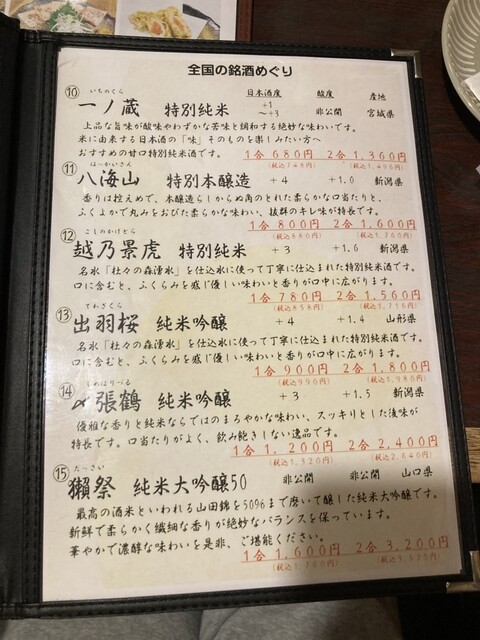 全国の銘酒めぐり
日本酒度 酸度 産地
いちのくら
⑩ 一ノ蔵 特別純米 +1〜+3 非公開 宮城県
上品な旨味が酸味やわずかな苦味と調和する絶妙な味わいです。
米に由来する日本酒の「味」そのものを楽しみたい方へ
おすすめの甘口特別純米酒です。
1合 680円 2合 1,360円
(税込748円) (税込1,496円)
はっかいさん
⑪ 八海山 特別本醸造 +4 +1.0 新潟県
香りは控えめで、本醸造らしからぬ角のとれた柔らかな口当たりと、
ふくよかで丸みをおびた柔らかな味わい、抜群のキレ味が特長です。
1合 800円 2合 1,600円
(税込880円) (税込1,760円)
こしのかげとら
⑫ 越乃景虎 特別純米 +3 +1.6 新潟県
名水「杜々の森湧水」を仕込水に使って丁寧に仕込まれた特別純米酒です。
口に含むと、ふくらみを感じ優しい味わいと香りが口中に広がります。
1合 780円 2合 1,560円
(税込858円) (税込1,716円)
でわざくら
⑬ 出羽桜 純米吟醸 +4 +1.4 山形県
名水「杜々の森湧水」を仕込水に使って丁寧に仕込まれた特別純米酒です。
口に含むと、ふくらみを感じ優しい味わいと香りが口中に広がります。
1合 900円 2合 1,800円
(税込990円) (税込1,980円)
しめはりつる
⑭ 〆張鶴 純米吟醸 +3 +1.5 新潟県
優雅な香りと純米ならではのまろやかな味わい、スッキリとした後味が
特長です。口当たりがよく、飲み飽きしない逸品です。
1合 1,200円 2合 2,400円
(税込1,320円) (税込2,640円)
だっさい
⑮ 獺祭 純米大吟醸50 非公開 非公開 山口県
最高の酒米といわれる山田錦を50%まで磨いて醸した純米大吟醸です。
新鮮で柔らかく繊細な香りが絶妙なバランスを保っています。
華やかで濃醇な味わいを是非、ご堪能ください。
1合 1,600円 2合 3,200円
(税込1,760円) (税込3,520円)